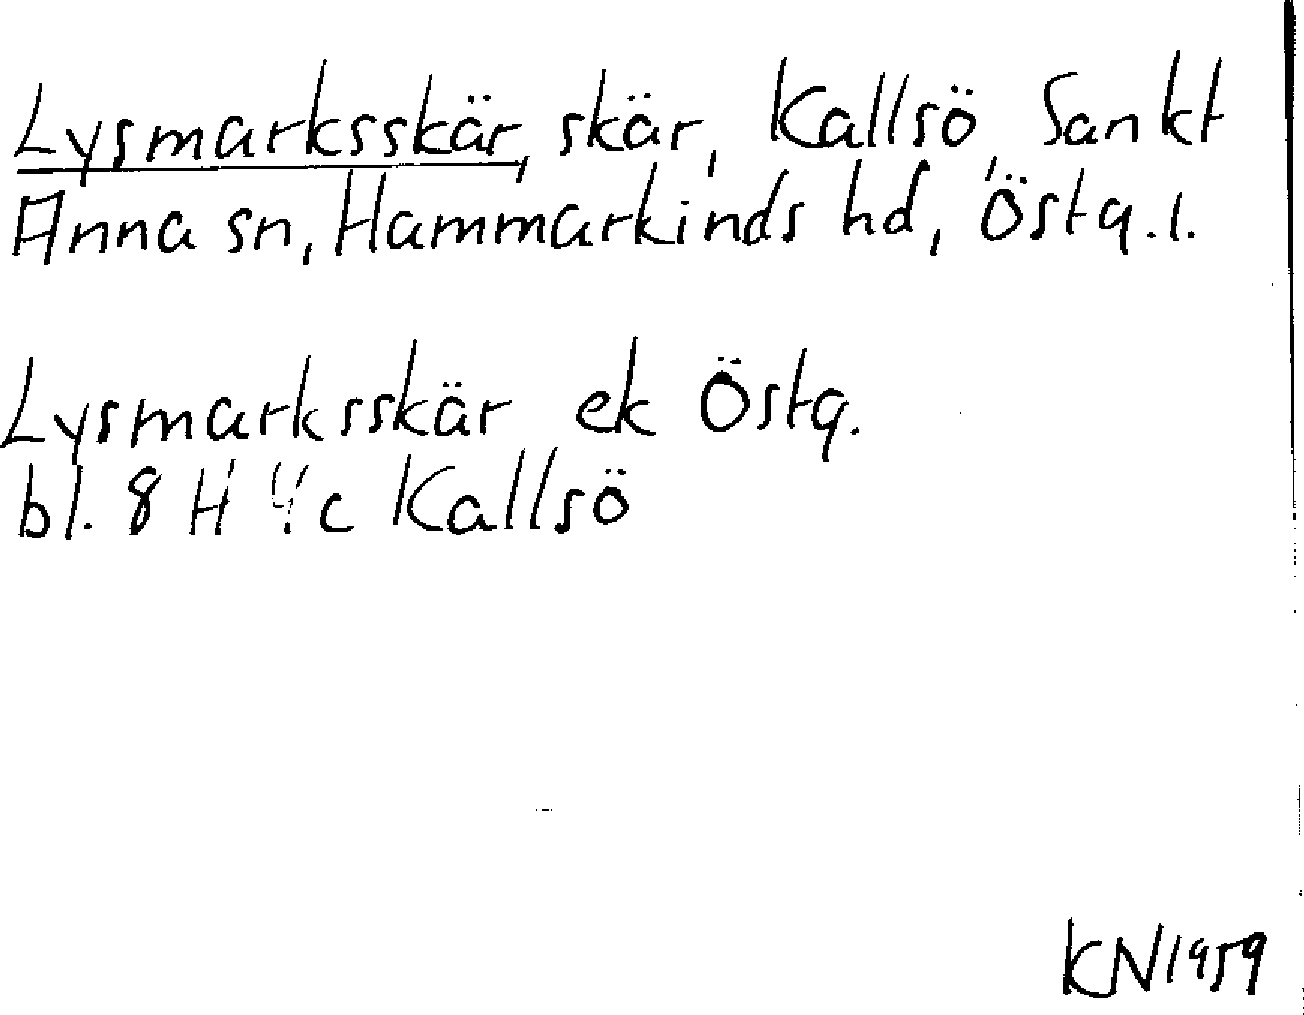 Lysmarksskär, skär, Kallsö, Sankt
Anna sn, Hammarkinds hd, Östg.l.
Lysmarksskär ek Östg.
bl. 8 H c Kallsö
KN 1959